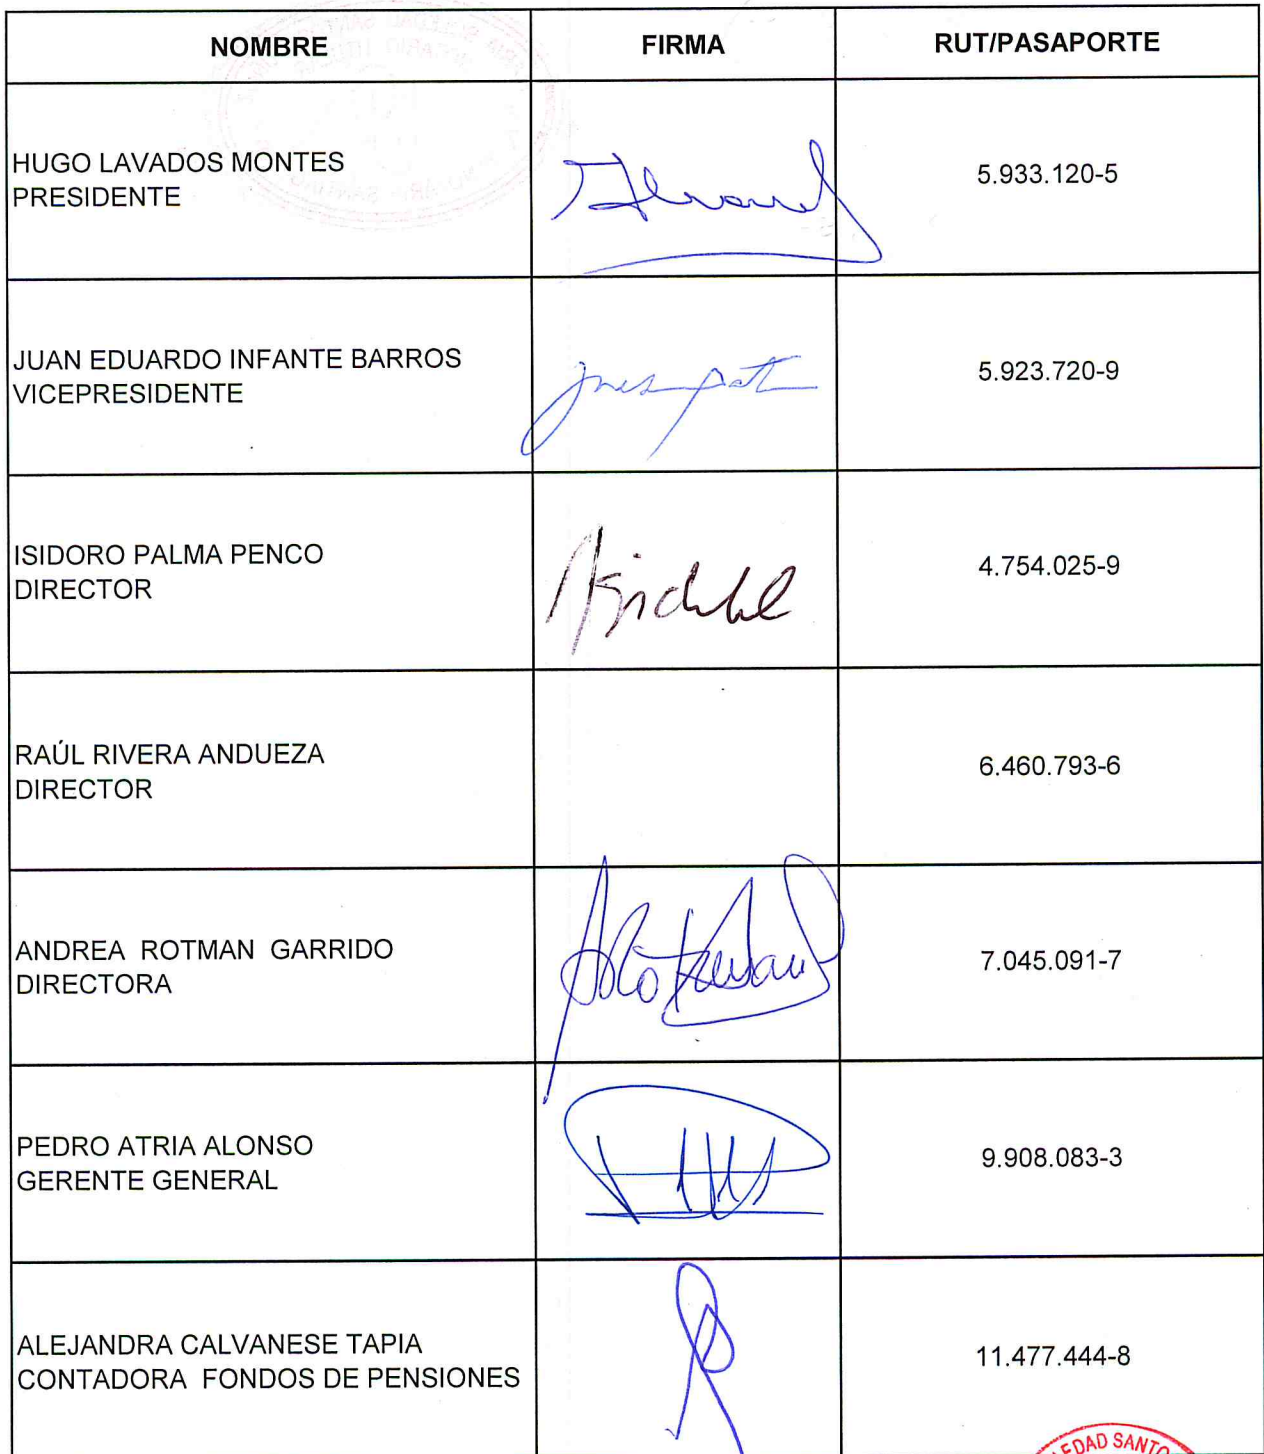 NOMBRE FIRMA RUT/PASAPORTE
HUGO LAVADOS MONTES
PRESIDENTE
5.933.120-5
JUAN EDUARDO INFANTE BARROS
VICEPRESIDENTE
5.923.720-9
ISIDORO PALMA PENCO
DIRECTOR
4.754.025-9
RAÚL RIVERA ANDUEZA
DIRECTOR
6.460.793-6
ANDREA ROTMAN GARRIDO
DIRECTORA
7.045.091-7
PEDRO ATRIA ALONSO
GERENTE GENERAL
9.908.083-3
ALEJANDRA CALVANESE TAPIA
CONTADORA FONDOS DE PENSIONES
11.477.444-8
EDAD SANTO